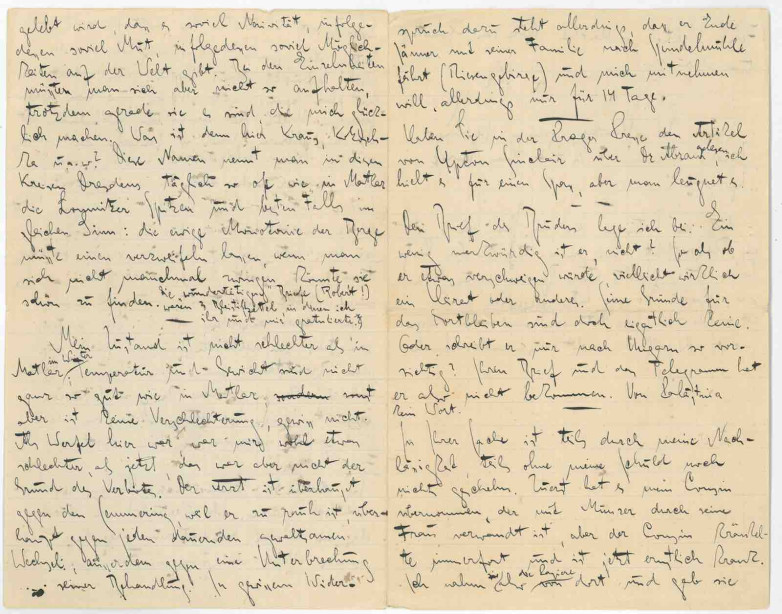 gelebt wird, daß es soviel Naivität, infolge-
dessen soviel Mut, infolgedessen soviel Möglich-
keiten auf der Welt gibt. An den Einzelnheiten
müßte man sich aber nicht so aufhalten,
trotzdem gerade sie es sind, die mich glück-
lich machen. Was ist denn hier Kraus,
u.s.w? Diese Namen nennt man in diesen
Kreisen Dresdens täglich so oft wie in Matlar
die Lomnitzer Spitzen und besten Falls im
gleichen Sinn: die ewige Monotonie der Berge
müßte einen verzweifeln lassen, wenn man
sich nicht manchmal zwingen könnte sie
schön zu finden.
Die "wundertätigen" Briefe (Robert!)
waren in denen ich
ihr und mir gratulierte
Mein Zustand ist nicht schlechter als in
Matlar im Winter, Temperatur und Gewicht sind nicht
ganz so gut wie in Matlar, sonst
aber ist keine Verschlechterung, gewiß nicht.
Als Werfel hier war, war mir wohl etwas
schlechter als jetzt, das war aber nicht der
Grund des Verbotes. Der Arzt ist überhaupt
gegen den Semmering, weil er zu rauh ist, über-
haupt gegen jeden dauernden gewaltsamen
Wechsel, außerdem gegen eine Unterbrechung
seiner Behandlung. In gewissem Wider-
spruch dazu steht allerdings, daß er Ende
Jänner mit seiner Familie nach Spindelmühle
fährt (Riesengebirge) und mich mitnehmen
will, allerdings nur für 14 Tage.
Haben Sie in der Prager Presse den Artikel
von Upton Sinclair über Dr Abrams gelesen, ich
hielt es für einen Spaß, aber man leugnet es.
Den Brief des Bruders lege ich bei. Ein
wenig merkwürdig ist er, nicht? So als ob
er etwas verschweigen würde, vielleicht wirklich
ein oder anderes. Seine Gründe für
das Fortbleiben sind doch eigentlich keine.
Oder schreibt er nur nach Ungarn so vor-
sichtig? Ihren Brief und das Telegramm hat
er also nicht bekommen. Von
kein Wort.
In Ihrer Sache ist teils durch meine Nach-
lässigkeit, teils ohne meine Schuld noch
nichts geschehn. Zuerst hat es mein Cousin
übernommen, der mit Münzer durch seine
Frau verwandt ist, aber der Cousin kränkel-
te immerfort und ist jetzt ernstlich krank.
Ich nahm die Papiere von dort und gab sie